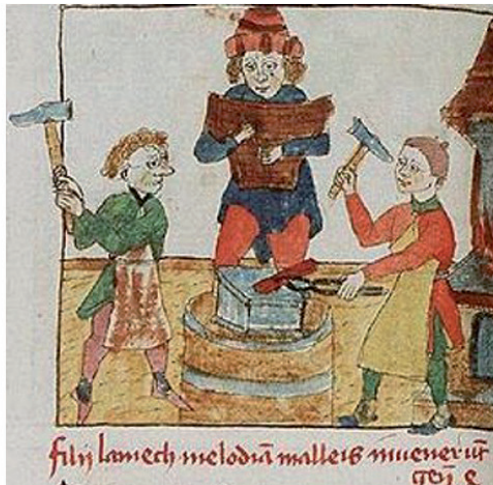 filij lamech melodiā malleis inuenerūt
geñ